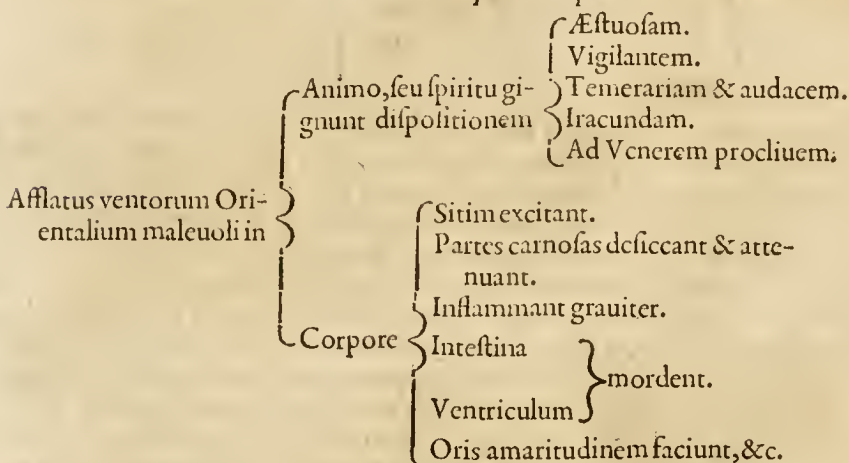 Afflatus ventorum Ori-
entalium maleuoli in
Animo, ſeu ſpiritu gi-
gnunt diſpoſitionem
Æſtuoſam.
Vigilantem.
Temerariam & audacem.
Iracundam.
Ad Venerem procliuem.
Corpore
Sitim excitant.
Partes carnoſas deſiccant & atte-
nuant.
Inflammant grauiter.
Inteſtina
Ventriculum
mordent.
Oris amaritudinem faciunt, &c.